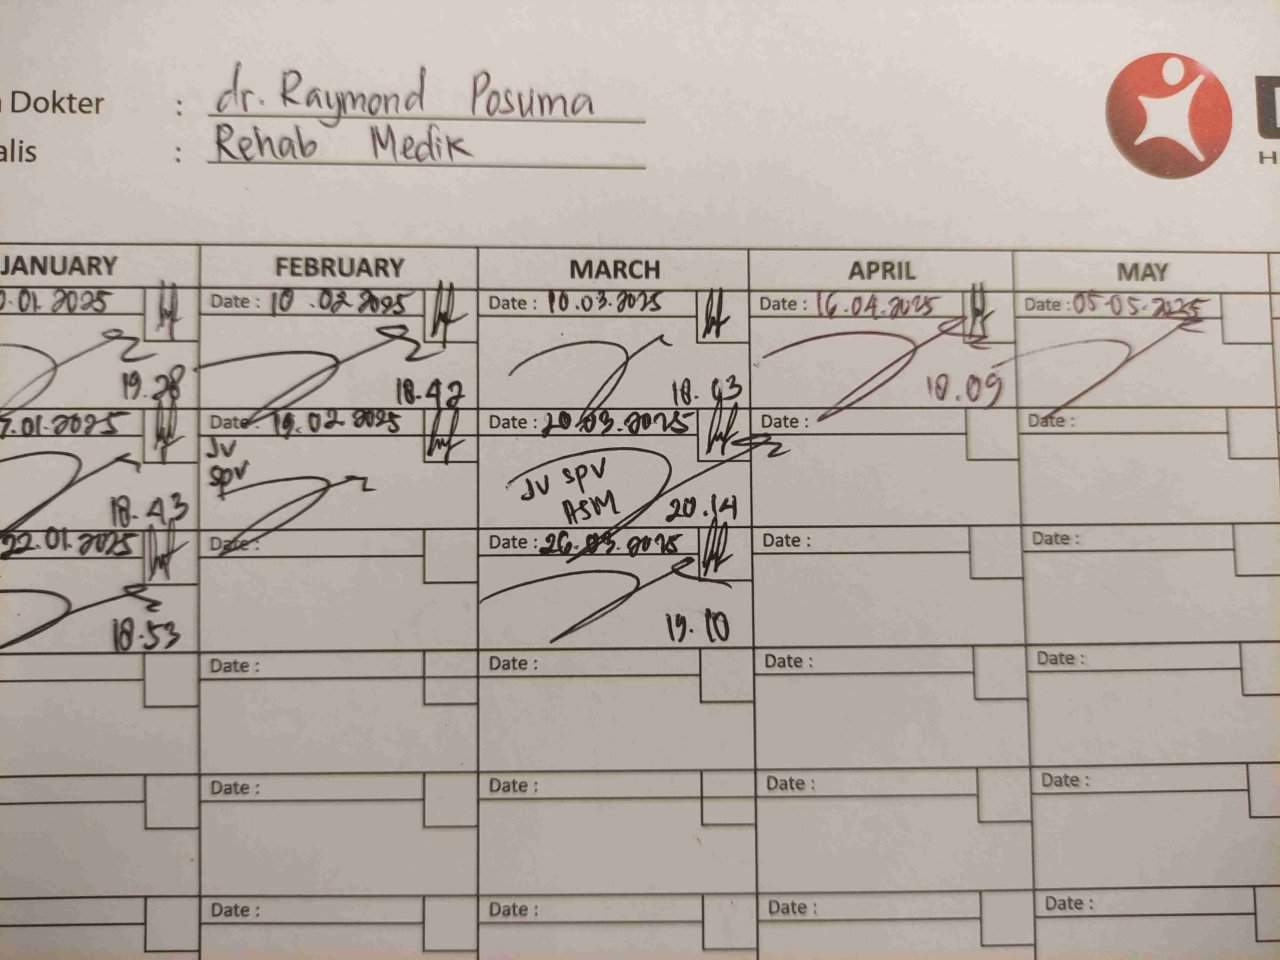 Dokter : dr. Raymond Posuma
alis : Rehab Medik
H
JANUARY FEBRUARY MARCH APRIL MAY
.01.2025 Date : 10.02.2025 Date : 10.03.2025 Date : 16.04.2025 Date : 05.05.2025
19.28 18.42 18.03 18.09
.01.2025 Date: 19.02.2025 Date : 20.03.2025 Date : Date :
JV
SPV JV SPV
ASM
18.43 20.14
22.01.2025 Date : Date : 26.03.2025 Date : Date :
18.53 19.10
Date : Date : Date : Date :
Date : Date : Date : Date :
Date : Date : Date : Date :